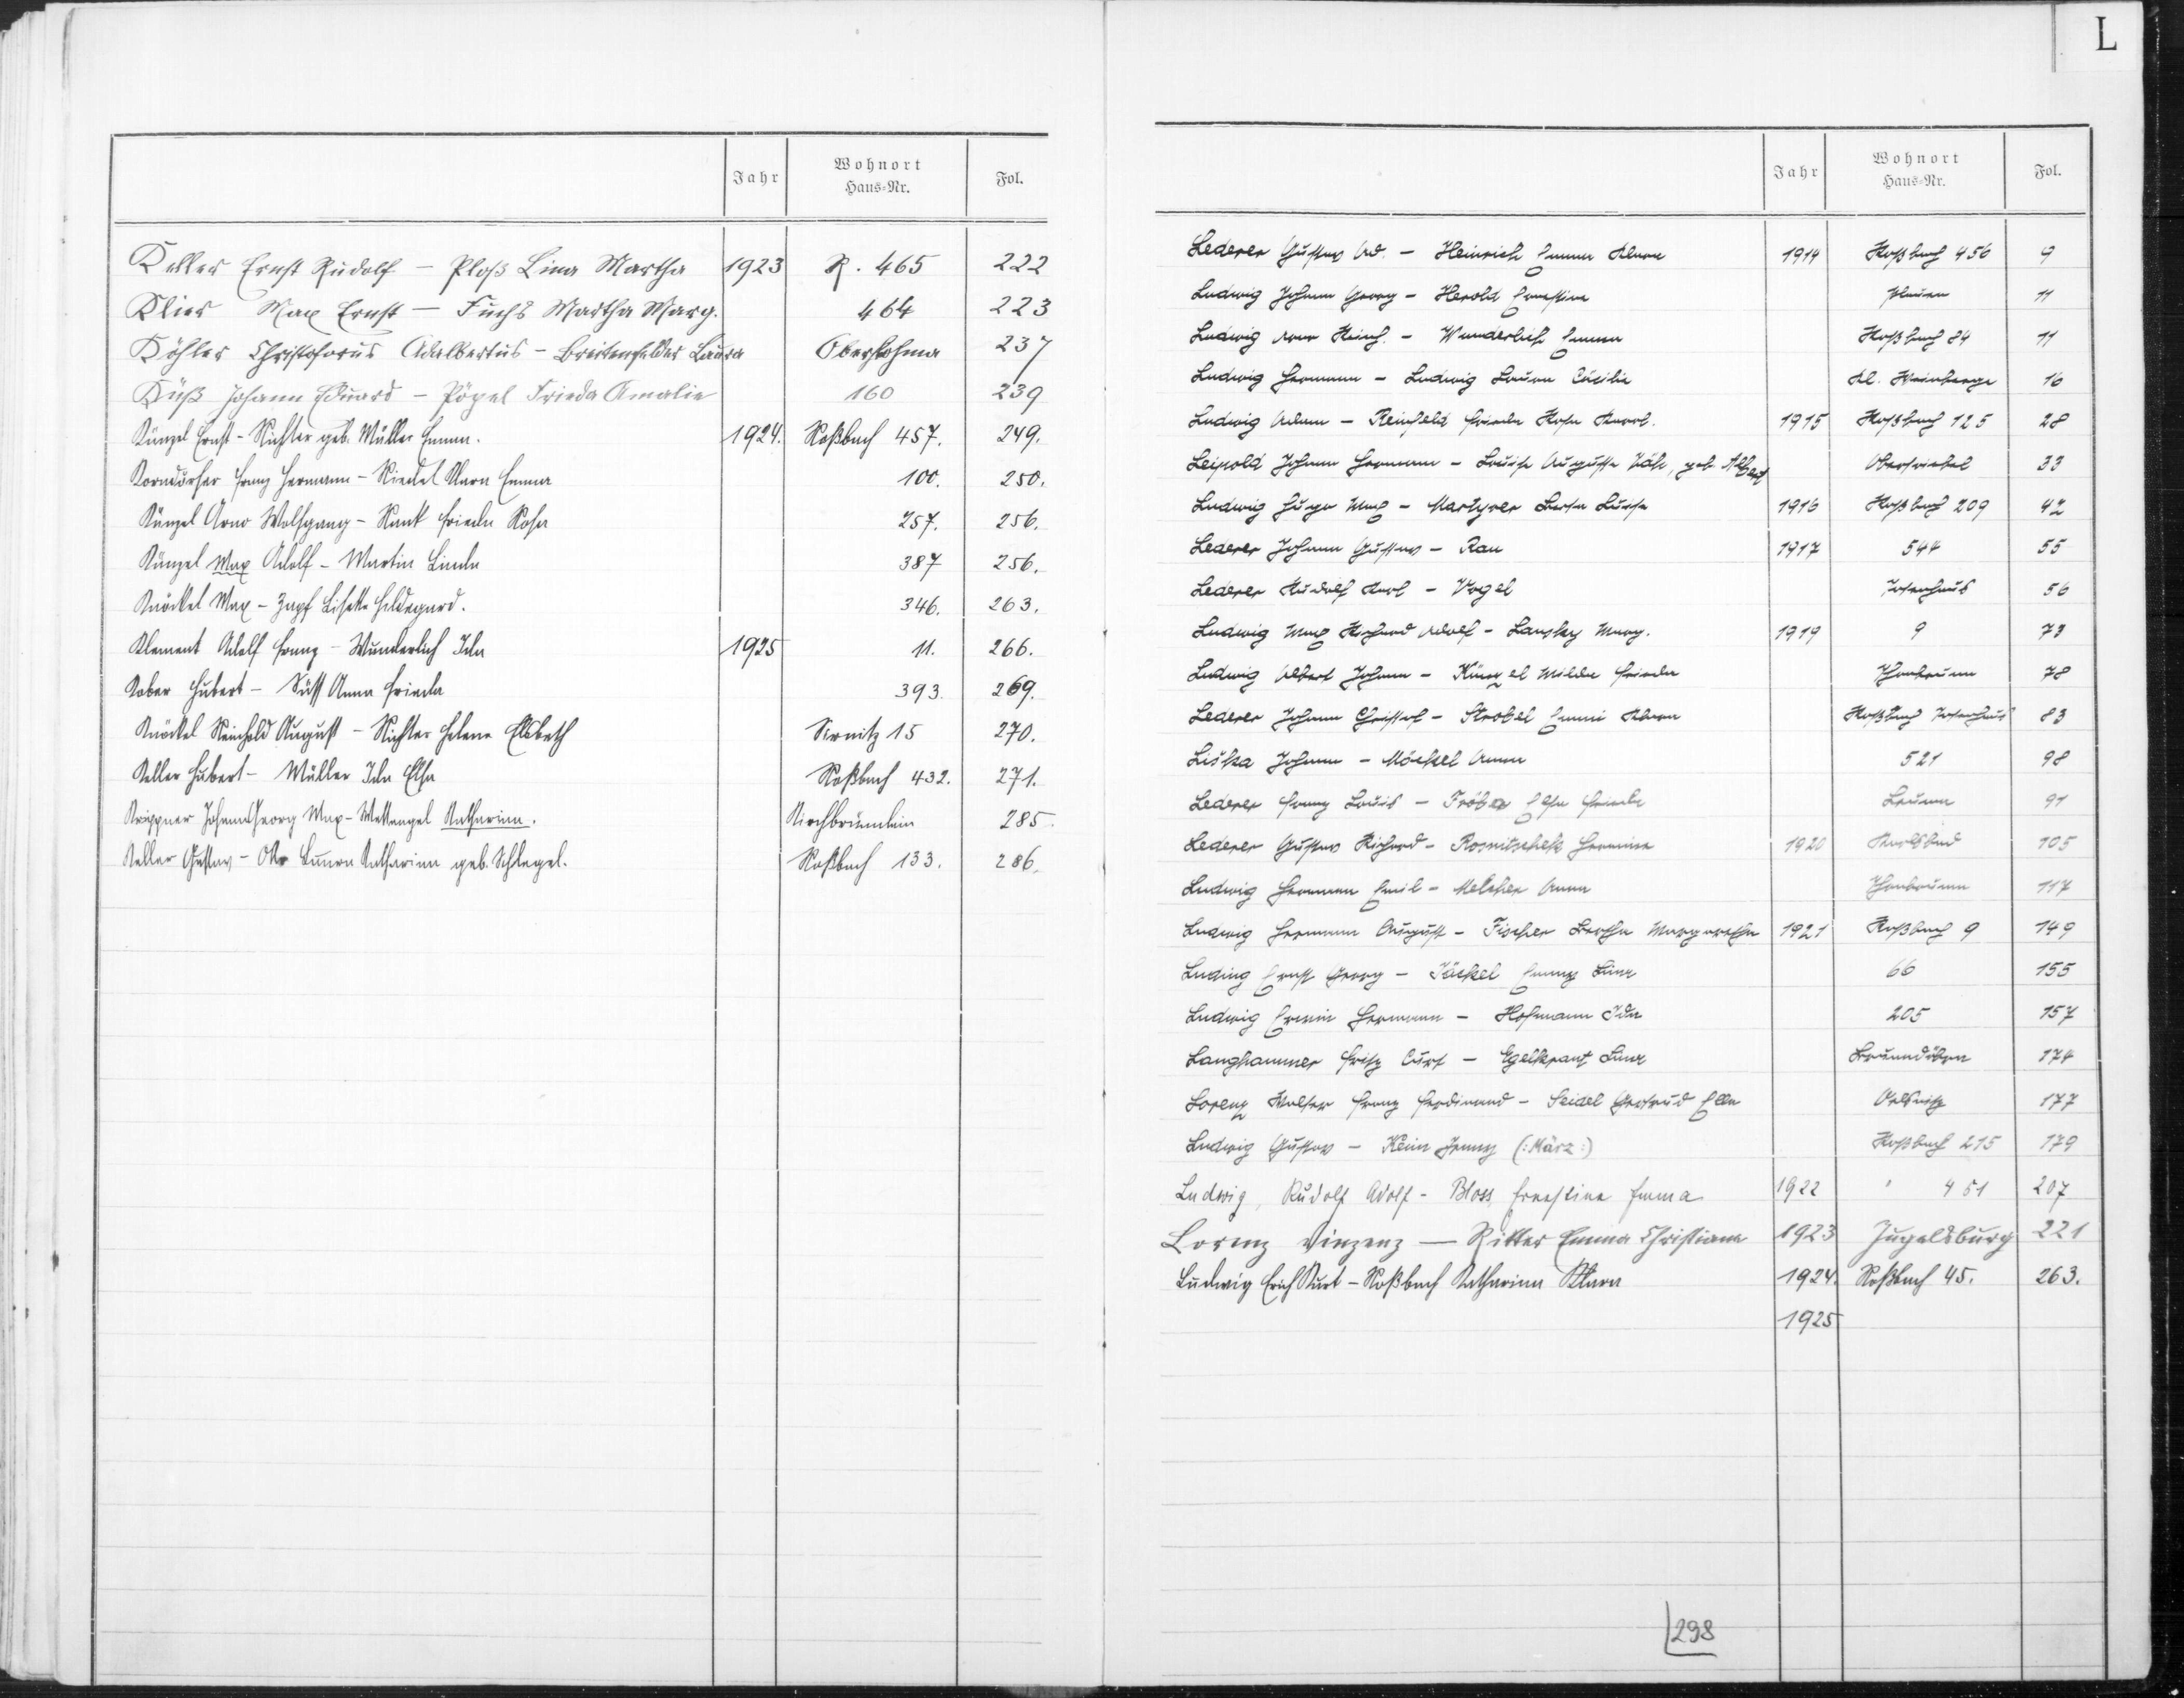 L
Jahr Wohnort Haus-Nr. Fol.
Keller Ernst Rudolf – Ploß Lina Martha 1923 R. 465 222
Klier Max Ernst – Fuchs Martha Marg. 464 223
Köhler Christoforus Adalbertus – Breitenfelder Laura Oberlohma 237
Küß Johann Eduard – Pöpel Frieda Amalie 160 239
Künzel Ernst – Richter geb. Müller Emma. 1924. Roßbach 457. 249.
Korndörfer Franz Hermann – Riedel Klara Emma 100. 250.
Künzel Arno Wolfgang – Rank Frieda Rosa 257. 256.
Künzel Max Adolf – Martin Linda 387 256.
Knöckel Max – Zapf Lisette Hildegard. 346. 263.
Klement Adolf Franz – Wunderlich Ida 1925 11. 266.
Kober Hubert – Süss Anna Frieda 393. 269.
Knöckel Reinhold August – Richter Helene Elsbeth 15 270.
Keller Hubert – Müller Ida Elsa Roßbach 432. 271.
Krippner Johann Georg Max – Wettengel Katharina. Kirchbrünnlein 285.
Keller Gustav – Ott Laura Katharina geb. Schlegel. Roßbach 133. 286.
Jahr Wohnort Haus-Nr. Fol.
Lederer Gustav Ad. – Heinrich Emma Klara 1914 Roßbach 456 9
Ludwig Johann Georg – Herold Ernestine Plauen 11
Ludwig Heinr. – Wunderlich Emma Roßbach 84 11
Ludwig Hermann – Ludwig Laura Cäcilie Kl. Weinberge 16
Ludwig Adam – Reinfeld Frieda Rosa Karol. 1915 Roßbach 125 28
Leipold Johann Hermann – Louise Auguste geb. Albert 33
Ludwig Hugo Max – Martyrer Berta Luise 1916 Roßbach 209 42
Lederer Johann Gustav – Rau 1917 544 55
Lederer Rudolf Karl – Vogel 56
Ludwig Max Richard Adolf – Lansky Marg. 1919 9 73
Ludwig Albert Johann – Künzel Milda Frieda Thonbrunn 78
Lederer Johann Christof – Strobel Emmi Klara Roßbach 83
Liška Johann – Möckel Anna 521 98
Lederer Franz Louis – Elsa Frieda 91
Lederer Gustav Richard – Rosnitschek Hermine 1920 Karlsbad 105
Ludwig Hermann Emil – Melcher Anna Thonbrunn 117
Ludwig Hermann August – Fischer Bertha Margaretha 1921 Roßbach 9 149
Ludwig Ernst Georg – Jäckel Emmy Lina 66 155
Ludwig Erwin Hermann – Hofmann Ida 205 157
Langhammer Fritz Curt – Egelkraut Lina Brunndöbra 174
Lorenz Walter Franz Ferdinand – Seidel Gertrud Ella Oelsnitz 177
Ludwig Gustav – Keim Jenny (:März:) Roßbach 215 179
Ludwig, Rudolf Adolf – Bloss Ernestine Emma 1922 " 451 207
Lorenz Vinzenz – Ritter Emma Christiane 1923 Jugelsburg 221
Ludwig Erich Kurt – Roßbach Katharina Klara 1924. Roßbach 45. 263.
1925
298